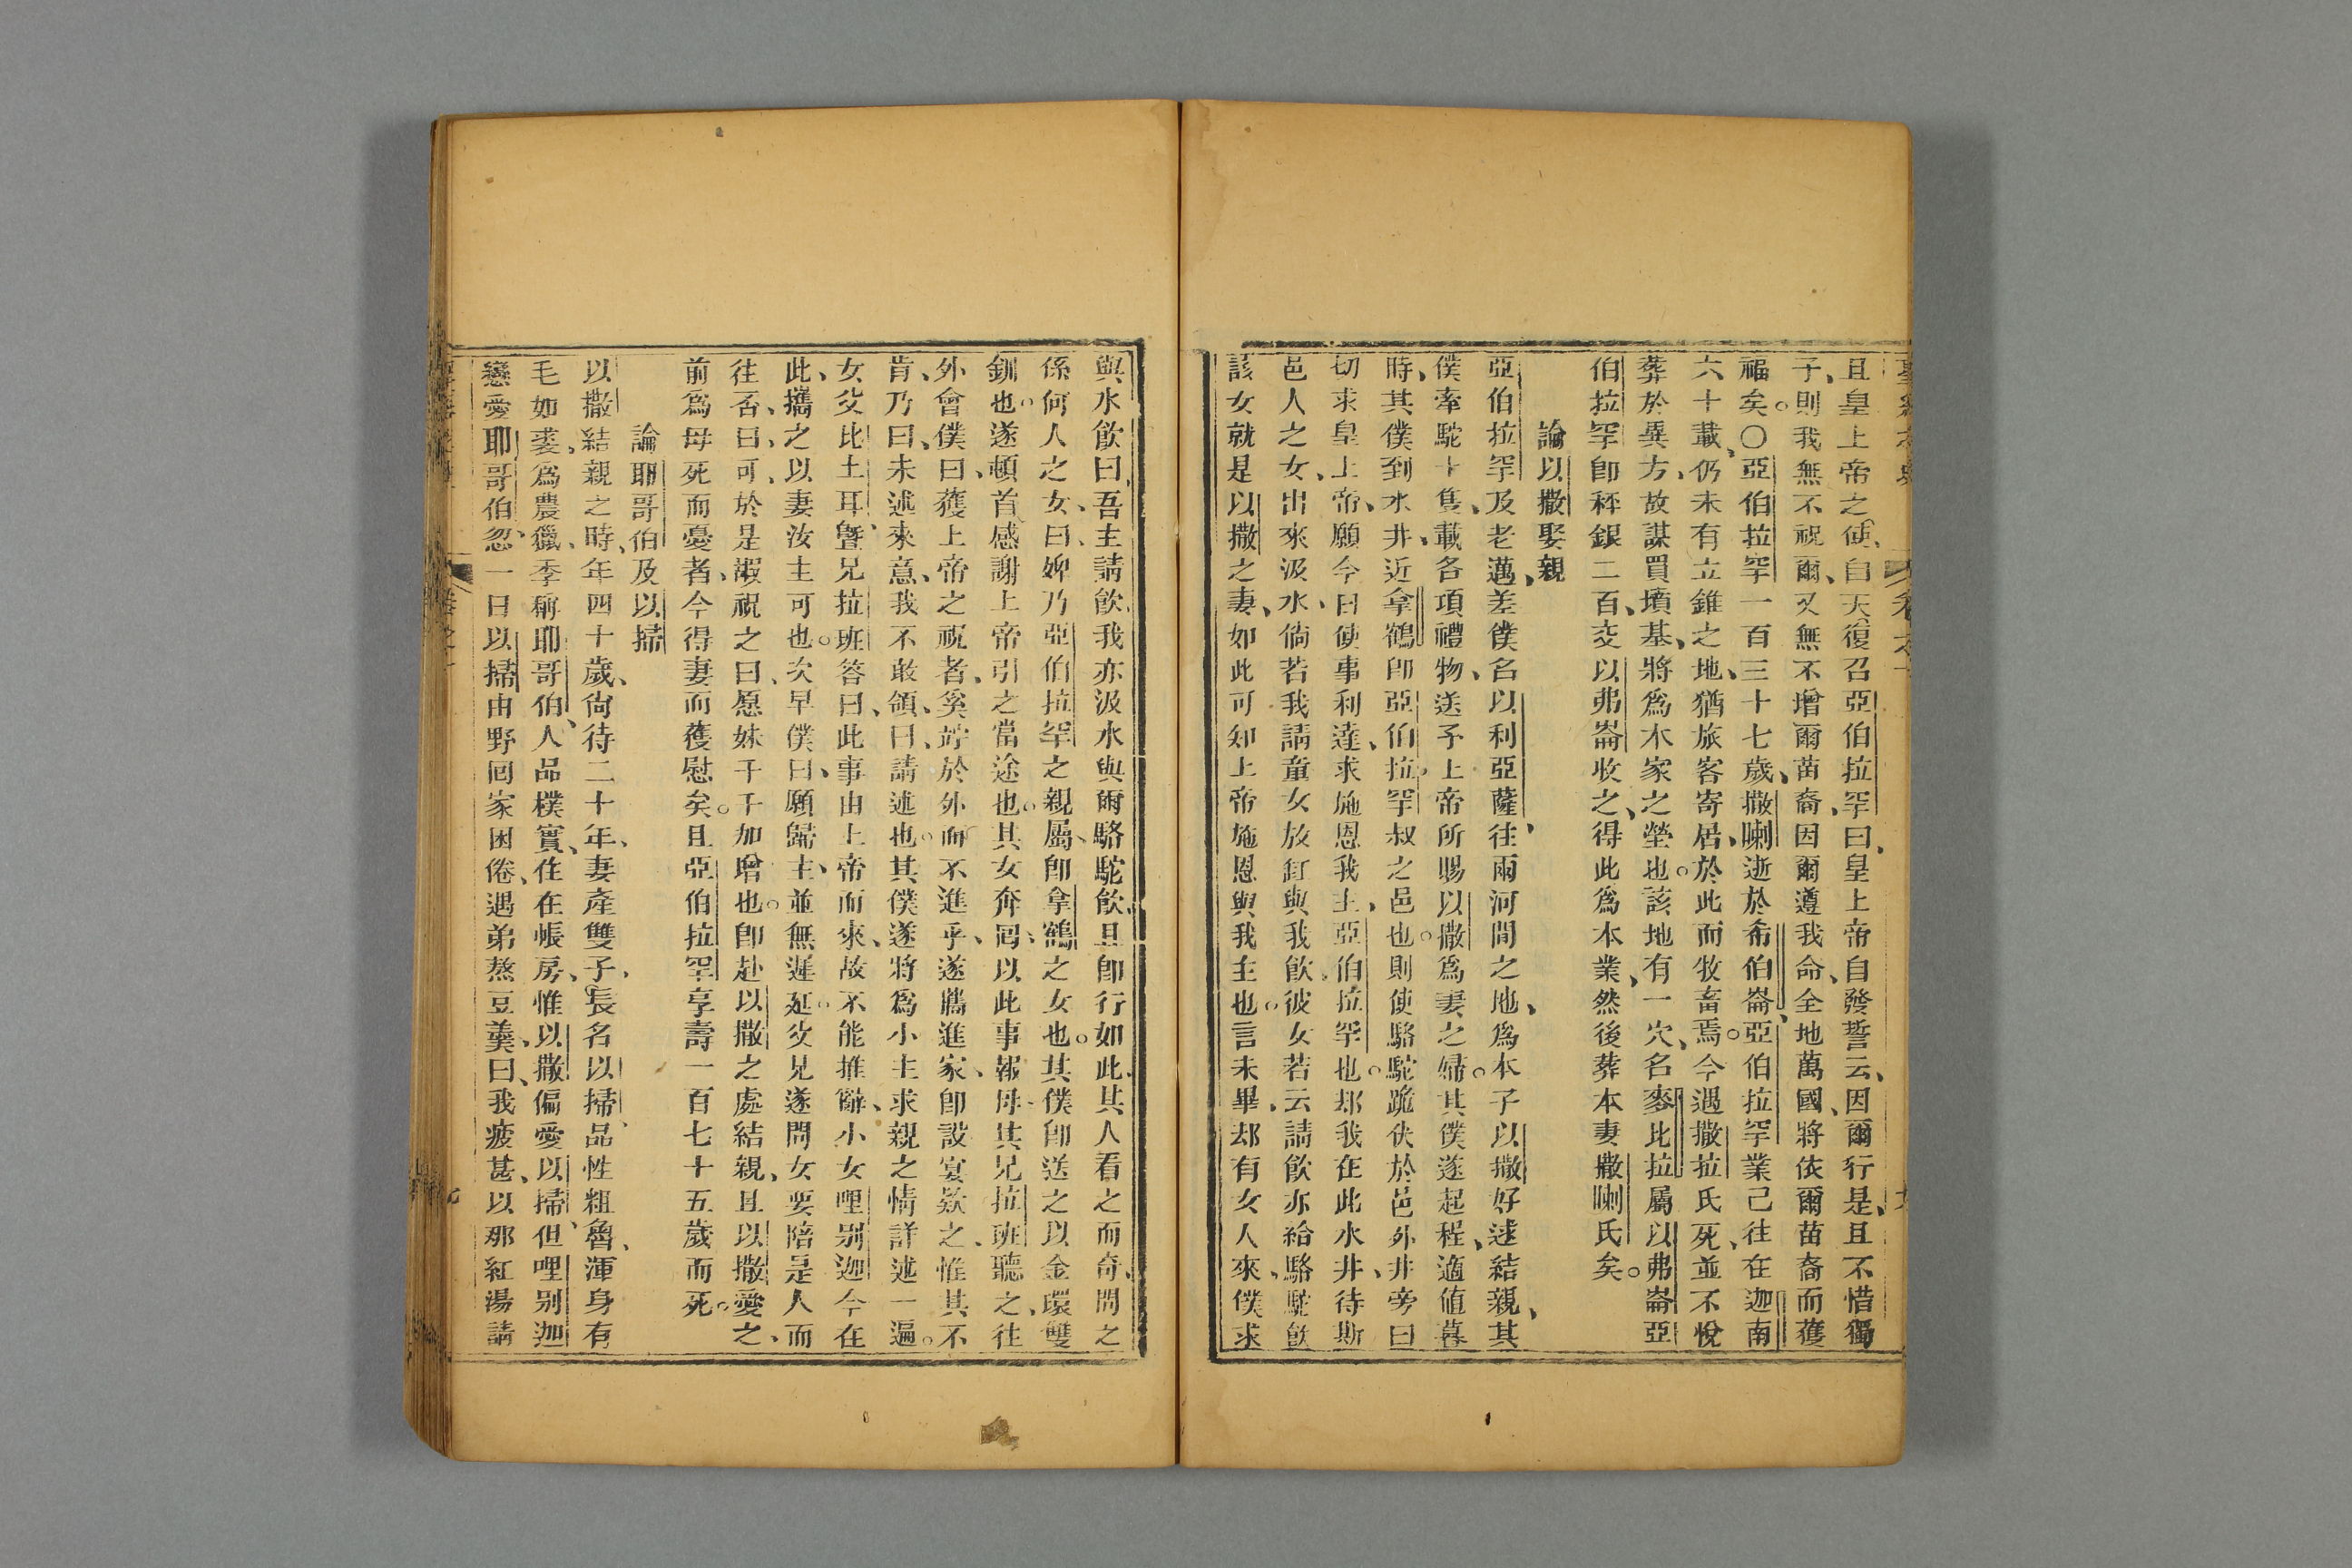 且皇上帝之使、自天復召亞伯拉罕曰、皇上帝自發誓云、因爾行是、且不惜獨
子、則我無不祝爾、又無不增爾苗裔、因爾遵我命、全地萬國、將依爾苗裔而獲
福矣。〇亞伯拉罕一百三十七歲、撒喇逝於希伯崙、亞伯拉罕業己往在迦南
六十載、仍未有立錐之地、猶旅客寄居、於此而牧畜焉。今遇撒拉氏死、並不悅
葬於異方、故謀買墳基、將爲本家之塋也。該地有一穴、名麥比拉屬以弗崙亞
伯拉罕卽秤銀二百、交以弗崙收之、得此爲本業、然後葬本妻撒喇氏矣。
論以撒娶親
亞伯拉罕及老邁、差僕名以利亞薩、往兩河間之地、爲本子以撒好逑結親、其
僕牽駝十隻、載各項禮物、送予上帝所賜以撒爲妻之婦。其僕遂起程、適値暮
時、其僕到水井、近拿鶴卽亞伯拉罕叔之邑也。則使駱駝跪伏於邑外井旁曰
切求皇上帝、願今日使事利達、求施恩我主、亞伯拉罕也。却我在此水井、待斯
邑人之女、出來汲水、倘若我請童女放缸與我飲、彼女若云請飲亦給駱駝飲
該女就是以撒之妻、如此可知上帝施恩與我主也。言未畢、却有女人來、僕求
與水飲曰、吾主請飲、我亦汲水與爾駱駝飲、且卽行如此、其人看之而奇、問之
係何人之女、曰、婢乃亞伯拉罕之親屬、卽拿鶴之女也。其僕卽送之以金環雙
釧也。遂頓首感謝上帝引之當途也。其女奔囘、以此事報母、其兄拉班聽之、往
外會僕曰、獲上帝之祝者、奚竚於外而不進乎、遂騰進家、卽設宴欵之、惟其不
肯、乃曰、未述來意、我不敢領、曰、請述也。其僕遂將爲小主求親之情詳述一遍。
女父比土耳、曁兄拉班答曰、此事由上帝而來、故不能推辭、小女哩別迦今在
此、攜之以妻汝主可也。次早僕曰、願歸主、並無遲延。父兄遂問女要陪是人而
往否、曰、可、於是嘏祝之曰、愿妹千千加增也。卽赴以撒之處結親、且以撒愛之、
前爲母死而憂者、今得妻而獲慰矣。且亞伯拉罕享壽一百七十五歲而死。
論耶哥伯及以掃
以撒結親之時、年四十歲、尙待二十年、妻產雙子、長名以掃、品性粗魯、渾身有
毛如裘、爲農獵、季稱耶哥伯、人品樸實、住在帳房、惟以撒偏愛以掃、但哩別迦
戀愛耶哥伯、忽一日以掃由野囘家困倦、遇弟熬豆羹、曰、我疲甚、以那紅湯請